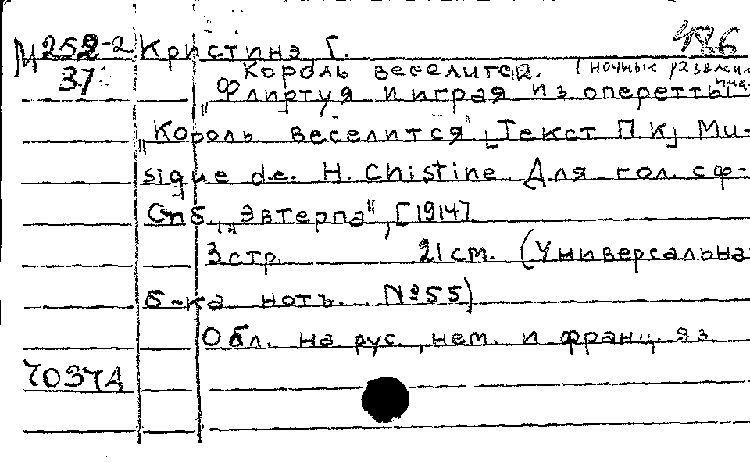 М 252-2 Кристинэ Г. 486
37 Король веселится. (ночные
"Флиртуя и играя из оперетты
"Король веселится" [Текст П.К] Mu-
sique de. H. Chistine Для гол. с ф-
Спб., "Эвтерпа", [1914]
3 стр. 21 см. (Универсальна
б-ка нотъ. №55)
Обл. на рус., нем. и франц. яз.
7037А